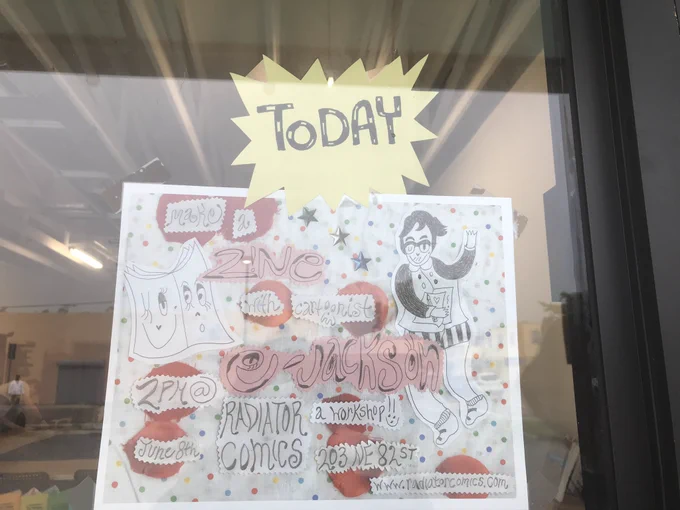 TODAY
make a
ZINE
with cartoonist
e-Jackson
2PM @
RADIATOR
COMICS
a workshop!!
June 8th
203 NE 82 ST
www.radiatorcomics.com